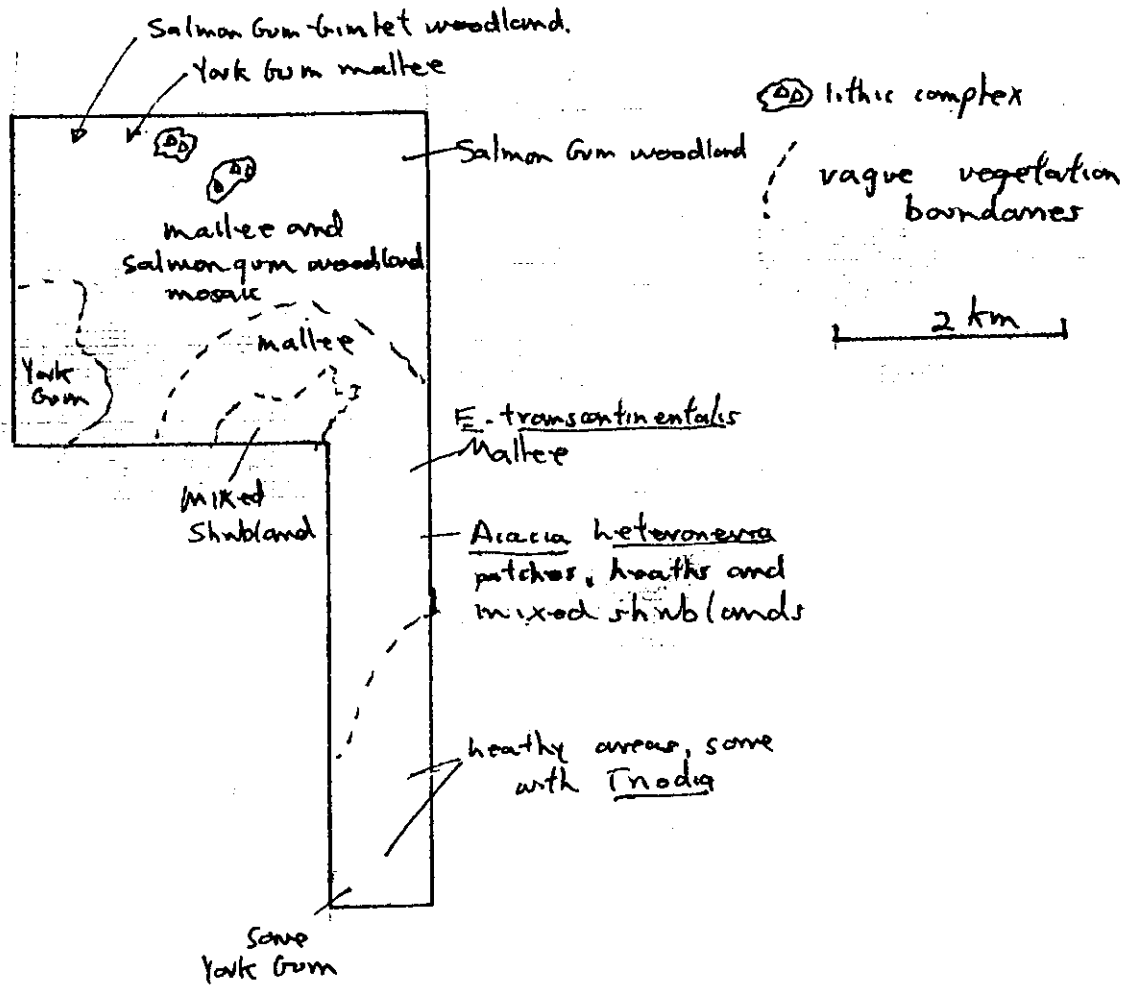 Salmon Gum-Gimlet woodland.
York Gum mallee
lithic complex
Salmon Gum woodland
vague vegetation
boundaries
mallee and
Salmon gum woodland
mosaic
2 km
mallee
York
Gum
E. transcontinentalis
Mallee
mixed
Shrubland
Acacia heteroneura
patches, heaths and
mixed shrublands
heathy areas, some
with Triodia
some
York Gum